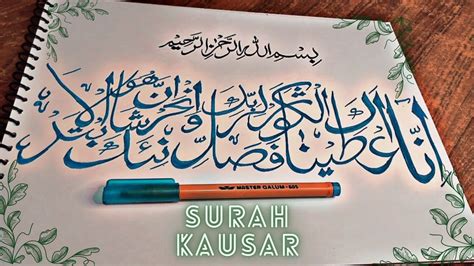 بسم الله الرحمن الرحيم
إنا أعطيناك الكوثر فصل لربك وانحر إن شانئك هو الأبتر
MASTER QALUM - 605
SURAH
KAUSAR